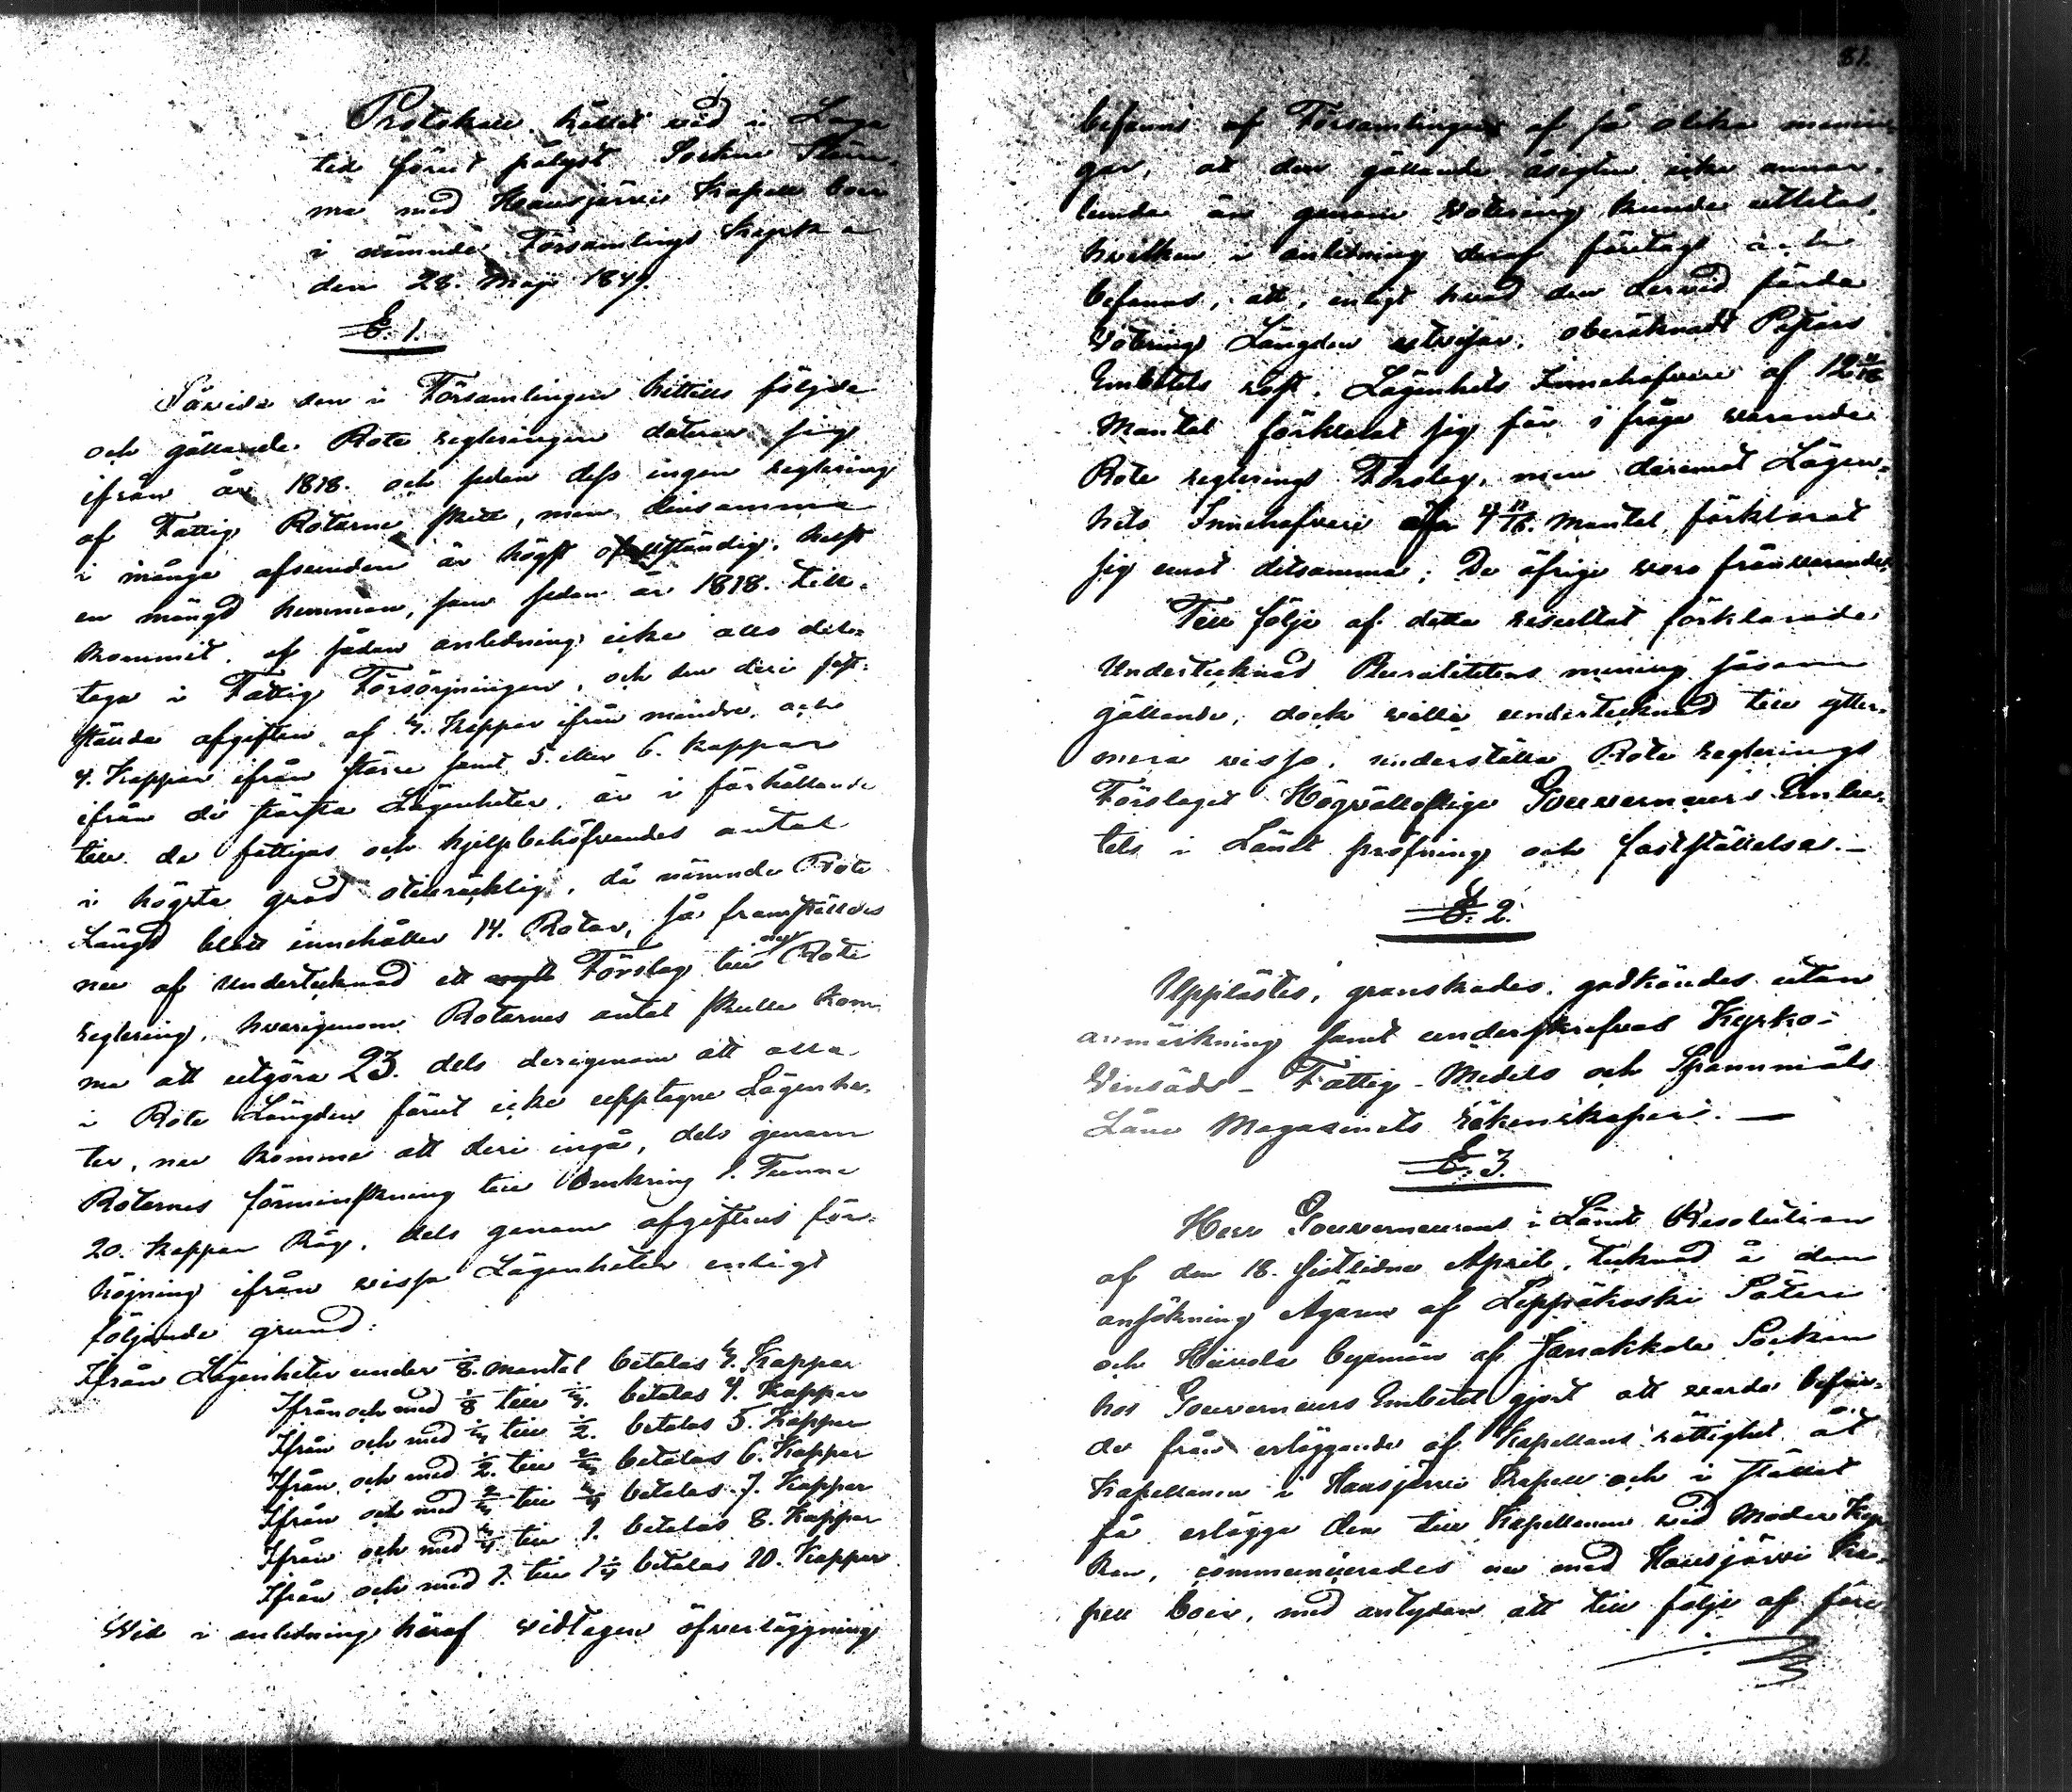 Protokoll hållet vid i Laga
tid förut pålyst Sockne Stäm-
ma med Hausjärvi Kapell boer
i nämnde Församlings Kyrka
den 28. Maji 1849.
§. 1.
Såvida den i Församlingen hittills följda
och gällande Rote regleringen daterar sig
ifrån år 1818. och sedan dess ingen reglering
af Fattig Rotarne skett, men densamma
i många afseenden är högst ofullständig, helst
en mängd hemman, som sedan år 1818. till-
kommit, af sådan anledning icke alls del-
taga i Fattig Försörjningen, och den deri fast-
stända afgiften af 3. Kappar ifrån mindre, och
4. Kappar ifrån större samt 5. eller 6. kappar
ifrån de största Lägenheter, är i förhållande
till de fattigas och hjelpbehöfvandes antal
i högsta grad otillräcklig, då nämnde Rote
Längd blott innehåller 14. Rotar, så framställdes
nu af Undertecknad ett Förslag till ny Rote
reglering, hvarigenom Rotarnes antal skulle kom-
ma att utgöra 23. dels derigenom att alla
i Rote Längden förut icke upptagne Lägenhe-
ter, nu komma att deri ingå, dels genom
Rotarnes förminskning till omkring 1. Tunna
20. kappar Råg, dels genom afgiftens för-
höjning ifrån vissa Lägenheter enligt
följande grund:
Ifrån Lägenheter under 1/8. mantal betalas 3. Kappar
Ifrån och med 1/8 till 1/4. betalas 4. Kappar
Ifrån och med 1/4 till 1/2. betalas 5. Kappar
Ifrån och med 1/2. till betalas 6. Kappar
Ifrån och med till betalas 7. Kappar
Ifrån och med till 1. betalas 8. Kappar
Ifrån och med 1. till 1 1/4 betalas 10. Kappar
Wid i anledning häraf vidtagen öfverläggning
81.
befanns af Församlingen af så olika menin-
gar, at den gällande åsigten icke annor-
lunda än genom Votering kunde utletas,
hvilken i anledning deraf företogs och
befanns, att, enligt hvad den dervid förda
Votering Längden utvisar, oberäknadt Pastors
Embetets röst, Lägenhets Innehafvare af 12 11/16
Mantal förklarat sig för i fråga varande
Rote reglerings Förslag, men deremot Lägen-
hets Innehafvare af 4 11/16. Mantal förklarat
sig emot detsamma; De öfrige voro frånvarande.
Till följe af detta resultat förklarade
Undertecknad Pluralitetens mening såsom
gällande, dock ville undertecknad till ytter-
mera visso, underställa Rote reglerings
Förslaget Högvällofliga Gouverneurs Embe-
tets i Länet pröfning och fastställelse. —
§. 2.
Upplästes, granskades, godkändes utan
anmärkning samt underskrefvos Kyrko-
Vinsäds - Fattig - Medels och Spannmåls
Låne Magasinets räkenskaper. —
§. 3.
Herr Gouverneurens i Länet Resolution
af den 18. sistlidne April, tecknad å den
ansökning Ägaren af Leppäkoski Säteri
och Hiivola byemän af Janakkala Socken
hos Gouverneurs Embetet gjort att varda befri-
de från erläggande af Kapellans rättighet åt
Kapellanen i Hausjärvi Kapell och i stället
få erlägga den till Kapellanen vid Moder Kyr-
kan, communicerades nu med Hausjärvi Ka-
pell boer, med antydan att till följe af före